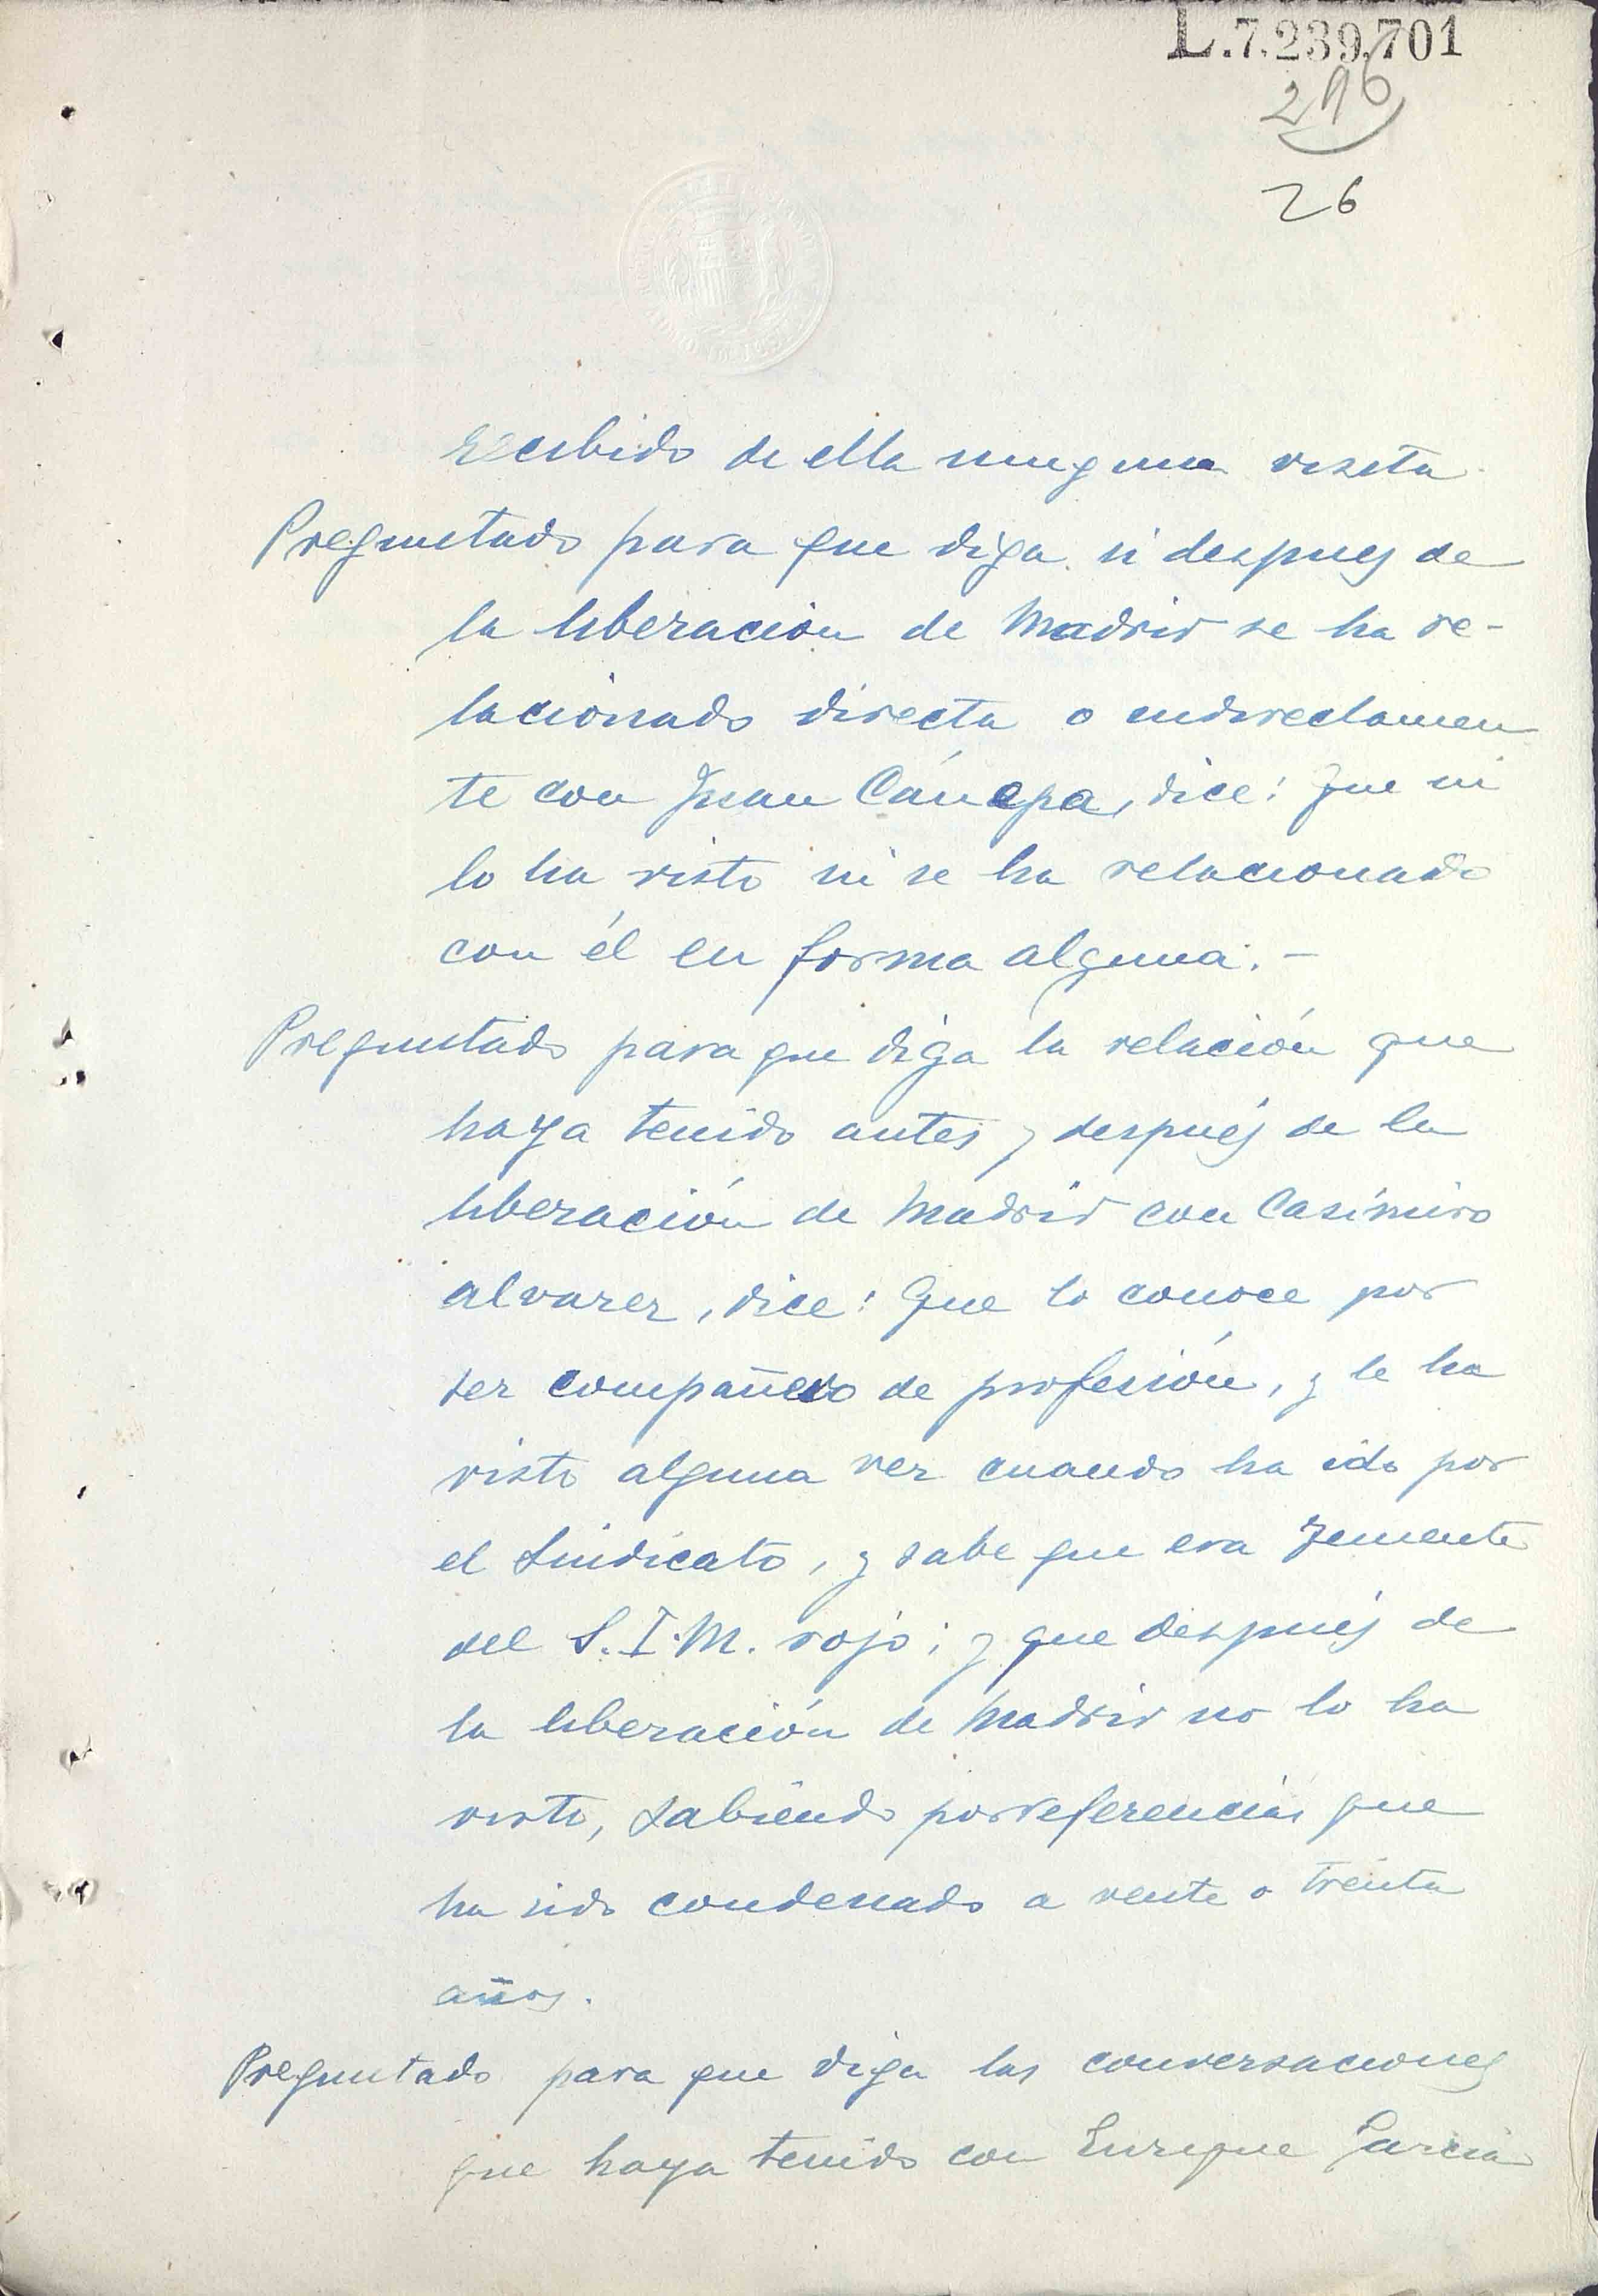 L.7.239.701
26
recibido de ella ninguna visita
Preguntado para que diga si despues de
la liberación de Madrid se ha re-
lacionado directa o indirectamen
te con Juan Cánepa, dice: Que ni
lo ha visto ni se ha relacionado
con él en forma alguna. -
Preguntado para que diga la relación que
haya tenido antes y después de la
liberación de Madrid con Casimiro
Alvarez, dice: Que lo conoce por
ser compañero de profesión, y le ha
visto alguna vez cuando ha ido por
el Sindicato, y sabe que era Teniente
del S.I.M. rojo; y que después de
la liberación de Madrid no lo ha
visto, sabiendo por referencias que
ha sido condenado a veinte o treinta
años.
Preguntado para que diga las conversaciones
que haya tenido con Enrique García